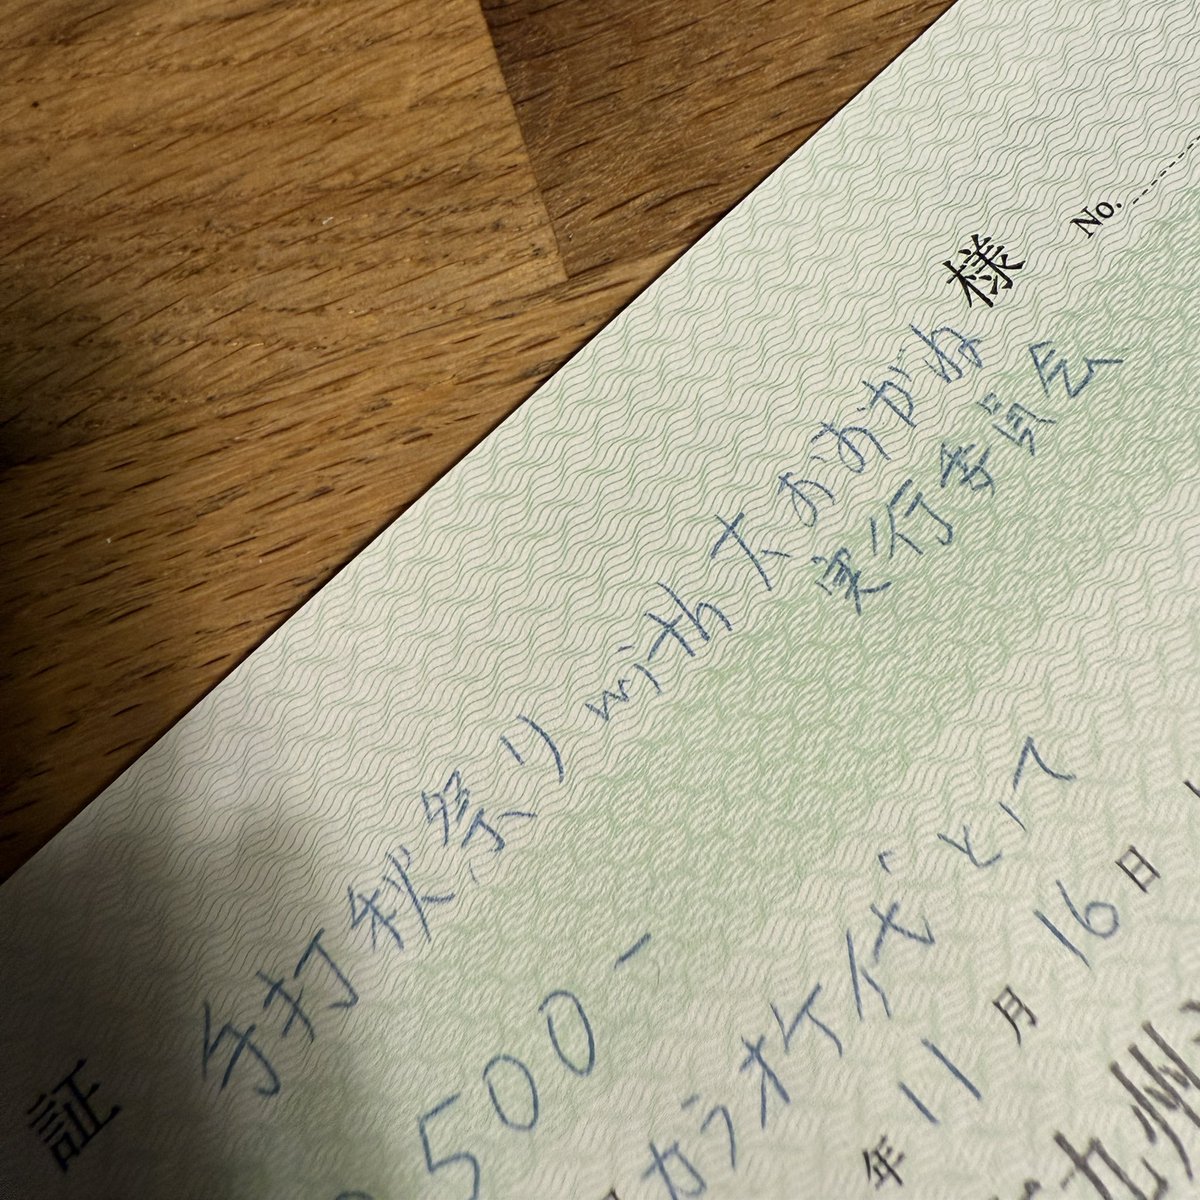 No.
手打秋祭り with 大おおがね 様
実行委員会
証
500-
カラオケ代として
年 11 月 16 日
九州